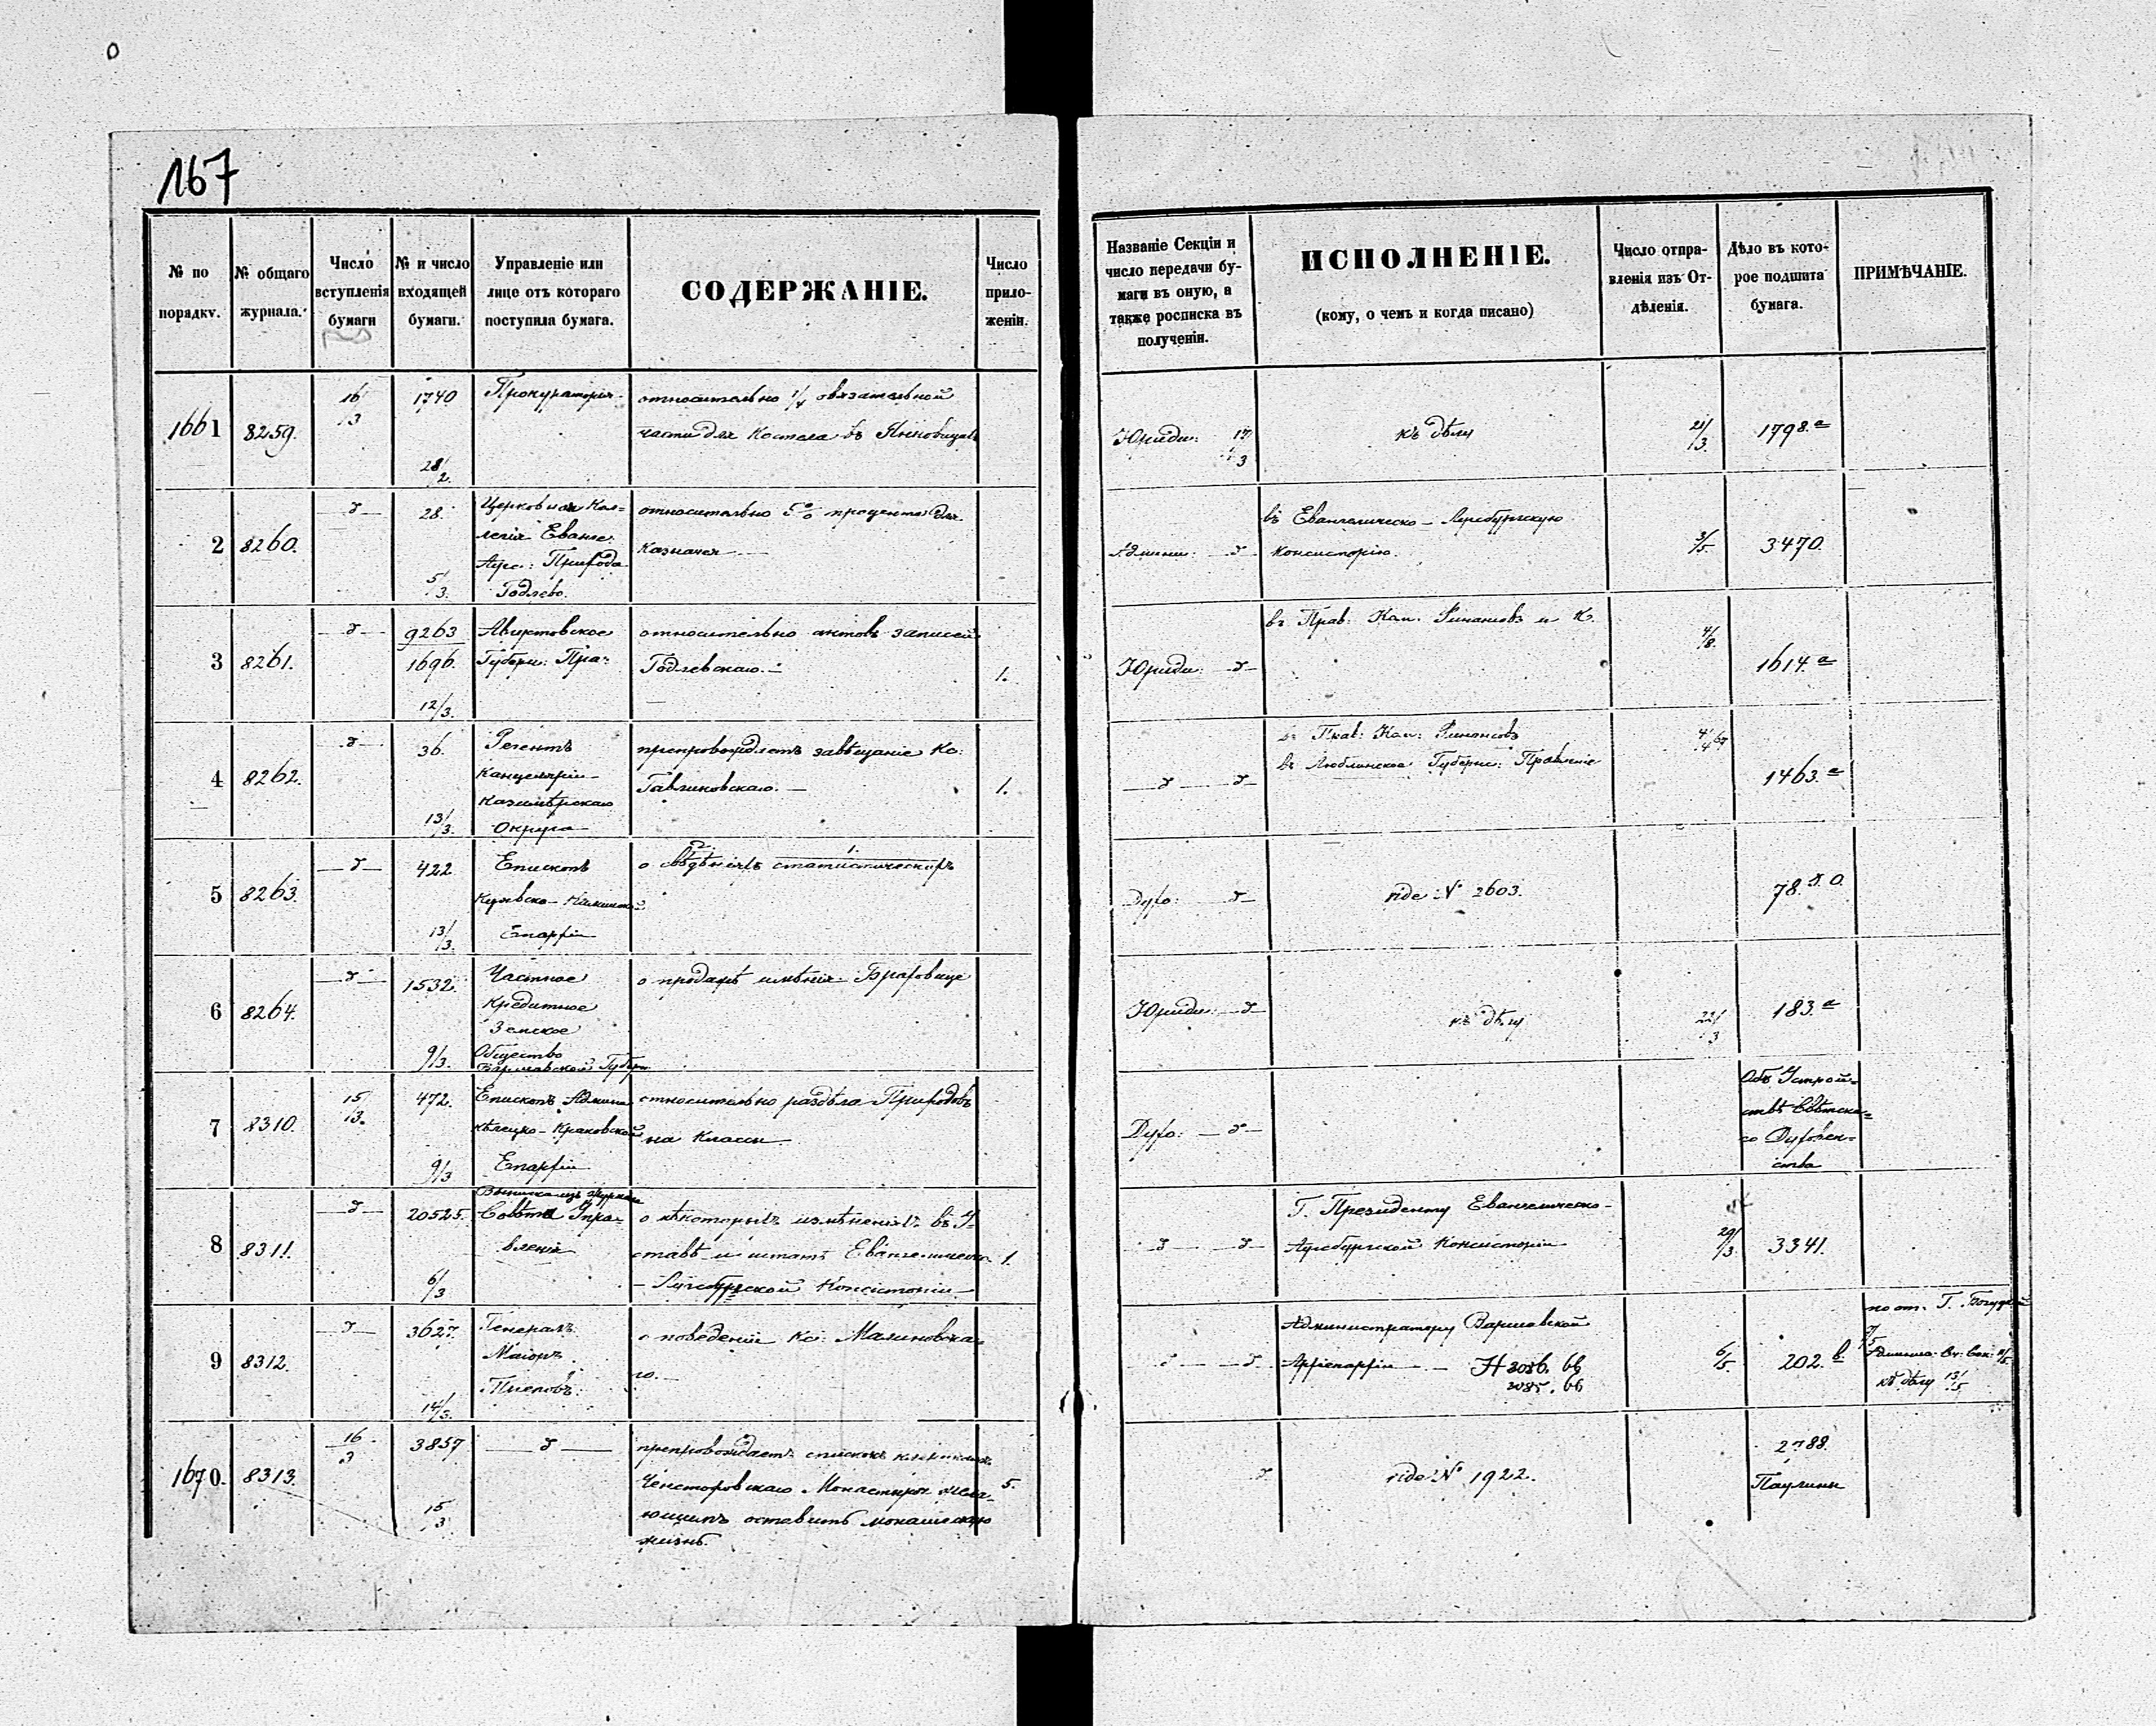 167
№ по порядку.
№ общаго журнала.
Число вступленія бумаги
№ и число входящей бумаги.
Управленіе или лице отъ котораго поступила бумага.
СОДЕРЖАНІЕ.
Число приложеніи.
Названіе Секціи и число передачи бумаги въ оную, а также росписка въ полученіи.
ИСПОЛНЕНІЕ.
(кому, о чемъ и когда писано)
Число отправленія изъ Отдѣленія.
Дѣло въ которое подшита бумага.
ПРИМѢЧАНІЕ.
1661 8259. 16/3 1740 28/2.
Прокураторія
относительно 1/4 обязательной
части для Костела въ
Юриди: 17/3
къ дѣлу
21/3. 1798.a
2 8260. 28. 5/3.
Церковная Кол=
легія Еванге:
Аугс: Прихода
Годлево.
относительно 5% процента для
Казначея
Админи:
въ Евангелическо-Аугсбургскую
Консисторію.
3/5. 3470.
3 8261. 9263
1696. 12/3.
Августовское
Губерн: Пра:
относительно актовъ записей
Годлевскаго.
1.
Юриди:
въ Прав: Ком. Финансовъ и К.
4/8. 1614.a
4 8262. 36. 13/3.
Регентъ
Канцеляріи
Казимѣрскаго
Округа
препровождаетъ завѣщаніе Кс:
Гавликовскаго.
1.
въ Прав: Ком: Финансовъ
въ Люблинское Губерн: Правленіе
1463.a
5 8263. 422 13/3.
Епископъ
Куявско-Калишской
Епархіи
о свѣдѣніяхъ статистическихъ
Духо:
vide № 2603.
78.
6 8264. 1532. 9/3.
Частное
Кредитное
Земское
Общество
Варшавской Губерн
о продажѣ имѣнія
Юриди:
къ дѣлу
22/3 183.a
7 8310. 15/3. 472. 9/3
Епископъ Админи
Кѣлецко-Краковской
Епархіи
относительно раздѣла Приходовъ
на Классы
Духо:
Объ Устрой=
ствѣ Свѣтска=
го Духовен=
ства
8 8311. 20525. 6/3
Выписка изъ журнала
Совѣта Упра=
вленія
о нѣкоторыхъ измѣненіяхъ въ У=
ставѣ и штатѣ Евангелическо
- Аугсбургской Консисторіи
1.
Г. Президенту Евангелическо-
Аугсбургской Консисторіи
29/3. 3341.
9 8312. 3627. 14/3.
Генералъ
Маіоръ
о поведеніи Кс: Малиновска=
го.
Администратору Варшавской
Архіепархіи 3086. 66
3085. 66
6/5. 202.b
къ дѣлу 13/5
1670. 8313. 16/3 3857 15/3
препровождаетъ списокъ клириковъ
Ченстоховскаго Монастыря жела=
ющихъ оставить монашескую
жизнь.
5.
vide № 1922.
2788.
Паулины